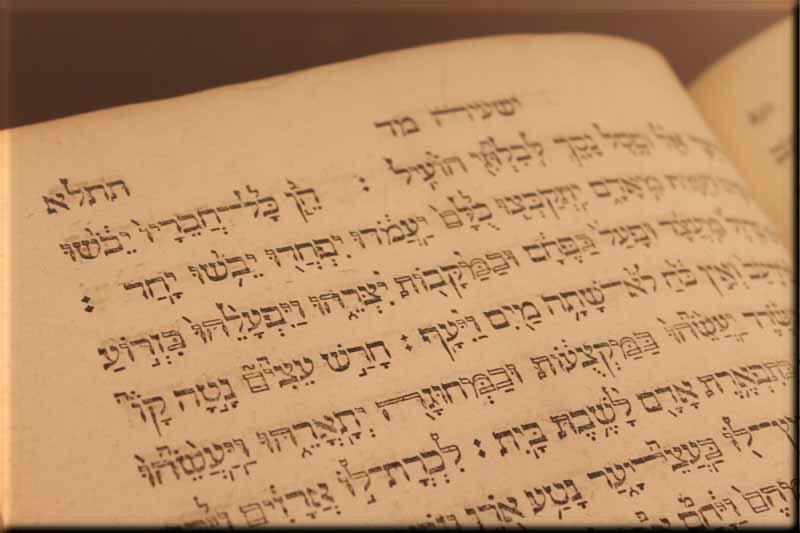 ישעיה מד
תתלא
אֵל וּפֶסֶל נָסָךְ לְבִלְתִּי הוֹעִיל ׃ הֵן כָּל־חֲבֵרָיו יֵבֹשׁוּ
מֵאָדָם יִתְקַבְּצוּ כֻלָּם יַעֲמֹדוּ יִפְחֲדוּ יֵבֹשׁוּ יָחַד ׃
מַעֲצָד וּפָעַל בַּפֶּחָם וּבַמַּקָּבוֹת יִצְּרֵהוּ וַיִּפְעָלֵהוּ בִּזְרוֹעַ
וְאֵין כֹּחַ לֹא־שָׁתָה מַיִם וַיִּעָף ׃ חָרַשׁ עֵצִים נָטָה קָו
יַעֲשֵׂהוּ בַּמַּקְצֻעוֹת וּבַמְּחוּגָה יְתָאֳרֵהוּ וַיַּעֲשֵׂהוּ
כְּתִפְאֶרֶת אָדָם לָשֶׁבֶת בָּיִת ׃ לִכְרָת־לוֹ אֲרָזִים
לוֹ בַּעֲצֵי־יָעַר נָטַע אֹרֶן